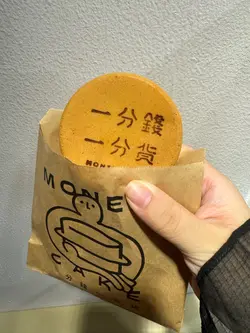 一分錢
一分貨
MONE
CAKE